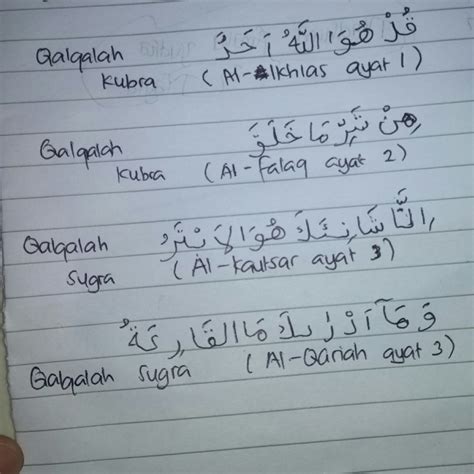 Qalqalah قُلْ هُوَ اللَّهُ اَحَدٌ
Kubra (Al-Ikhlas ayat 1)
Qalqalah مِنْ شَرِّ مَا خَلَقَ
Kubra (Al-Falaq ayat 2)
Qalqalah اِنَّ شَانِئَكَ هُوَ الْاَبْتَرُ
Sugra (Al-Kautsar ayat 3)
وَمَآ اَدْرٰىكَ مَا الْقَارِعَةُ
Qalqalah Sugra (Al-Qariah ayat 3)